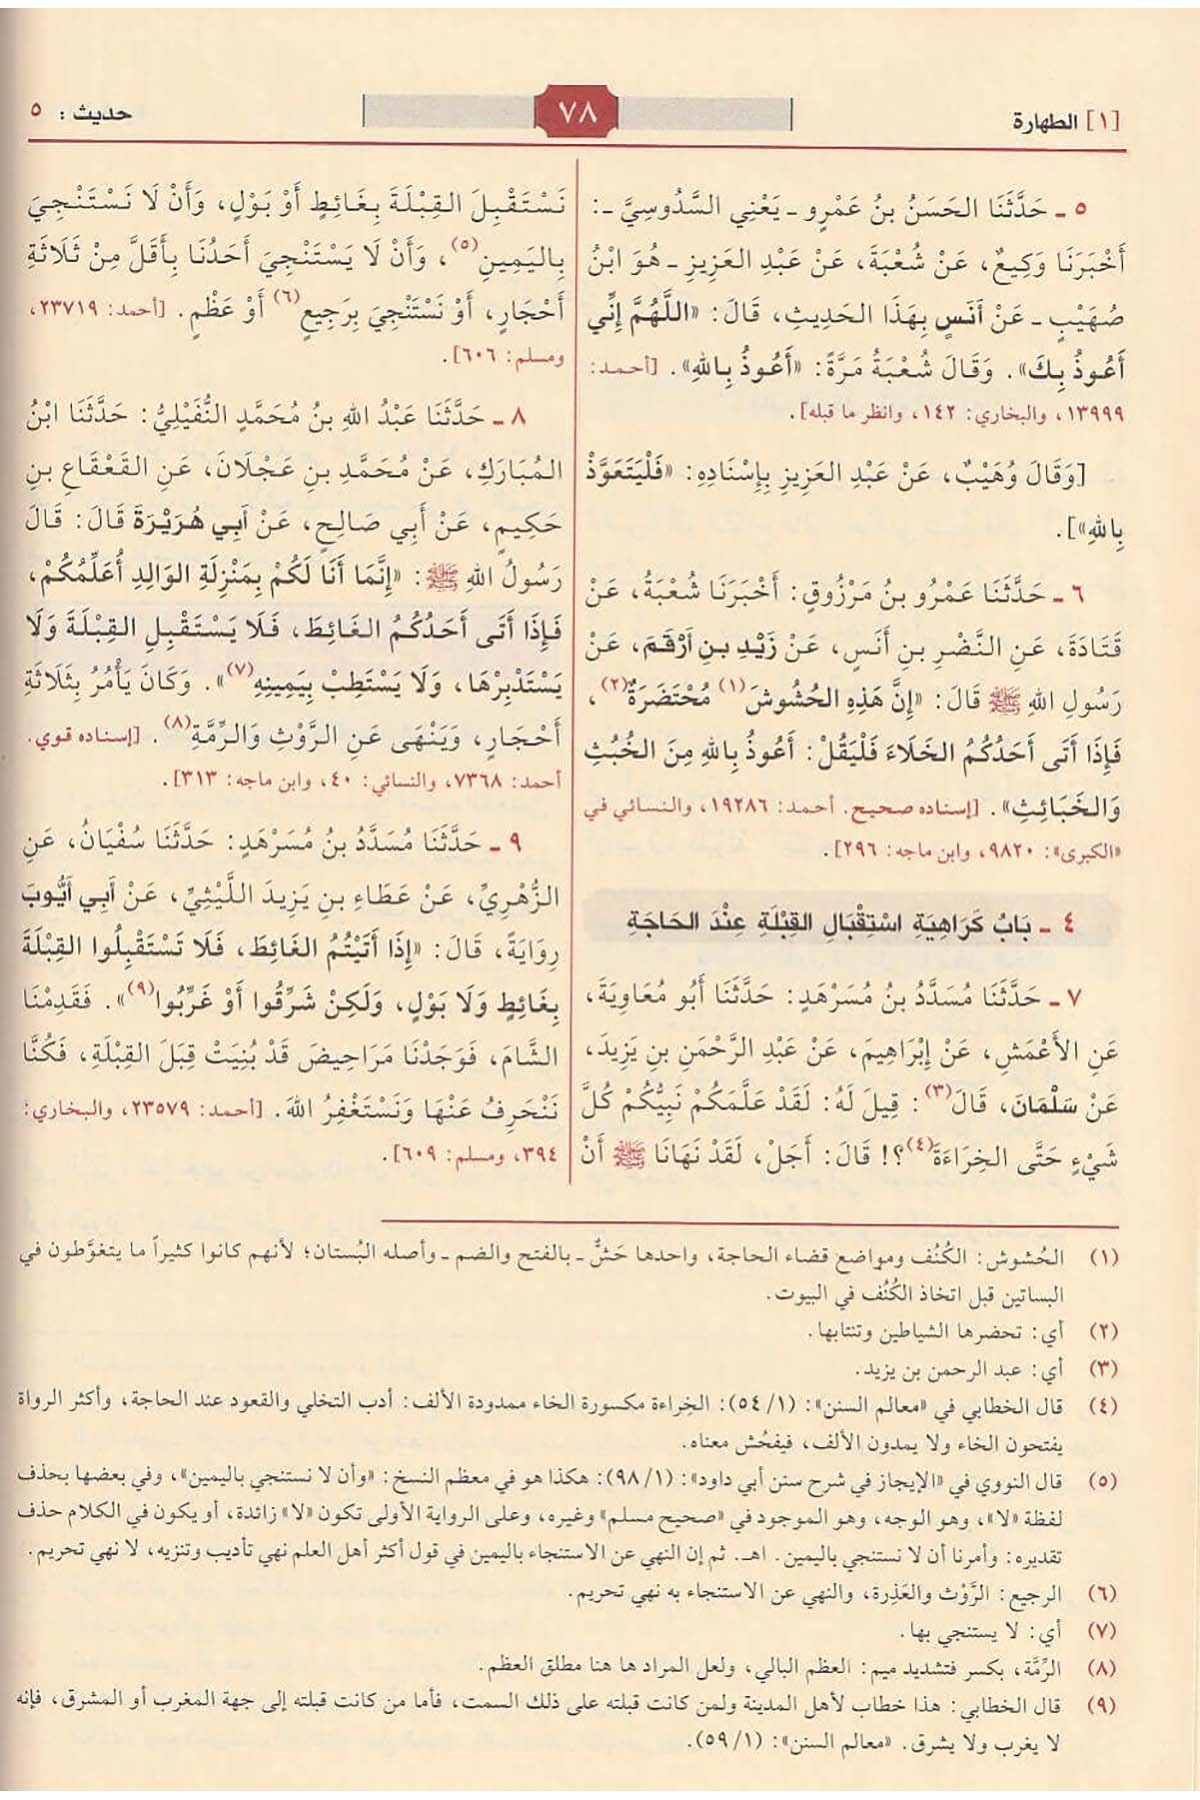 [١] الطهارة
٧٨
حديث : ٥
٥ ـ حَدَّثَنَا الحَسَنُ بنُ عَمْرٍو ـ يَعْنِي السَّدُوسِيَّ ـ:
أَخْبَرَنَا وَكِيعٌ، عَنْ شُعْبَةَ، عَنْ عَبْدِ العَزِيزِ ـ هُوَ ابْنُ
صُهَيْبٍ ـ عَنْ أَنَسٍ بِهَذَا الحَدِيثِ، قَالَ: «اللَّهُمَّ إِنِّي
أَعُوذُ بِكَ». وَقَالَ شُعْبَةُ مَرَّةً: «أَعُوذُ بِاللهِ». [أحمد:
١٣٩٩٩، والبخاري: ١٤٢، وانظر ما قبله].
[وَقَالَ وُهَيْبٌ، عَنْ عَبْدِ العَزِيزِ بِإِسْنَادِهِ: «فَلْيَتَعَوَّذْ
بِاللهِ»].
٦ ـ حَدَّثَنَا عَمْرُو بنُ مَرْزُوقٍ: أَخْبَرَنَا شُعْبَةُ، عَنْ
قَتَادَةَ، عَنِ النَّضْرِ بنِ أَنَسٍ، عَنْ زَيْدِ بنِ أَرْقَمَ، عَنْ
رَسُولِ اللهِ ﷺ قَالَ: «إِنَّ هَذِهِ الحُشُوشَ(١) مُحْتَضَرَةٌ(٢)،
فَإِذَا أَتَى أَحَدُكُمُ الخَلَاءَ فَلْيَقُلْ: أَعُوذُ بِاللهِ مِنَ الخُبُثِ
وَالخَبَائِثِ». [إسناده صحيح. أحمد: ١٩٢٨٦، والنسائي في
«الكبرى»: ٩٨٢٠، وابن ماجه: ٢٩٦].
٤ ـ بَابُ كَرَاهِيَةِ اسْتِقْبَالِ القِبْلَةِ عِنْدَ الحَاجَةِ
٧ ـ حَدَّثَنَا مُسَدَّدُ بنُ مُسَرْهَدٍ: حَدَّثَنَا أَبُو مُعَاوِيَةَ،
عَنِ الأَعْمَشِ، عَنْ إِبْرَاهِيمَ، عَنْ عَبْدِ الرَّحْمَنِ بنِ يَزِيدَ،
عَنْ سَلْمَانَ، قَالَ(٣): قِيلَ لَهُ: لَقَدْ عَلَّمَكُمْ نَبِيُّكُمْ كُلَّ
شَيْءٍ حَتَّى الخِرَاءَةَ(٤)؟! قَالَ: أَجَلْ، لَقَدْ نَهَانَا ﷺ أَنْ
نَسْتَقْبِلَ القِبْلَةَ بِغَائِطٍ أَوْ بَوْلٍ، وَأَنْ لَا نَسْتَنْجِيَ
بِاليَمِينِ(٥)، وَأَنْ لَا يَسْتَنْجِيَ أَحَدُنَا بِأَقَلَّ مِنْ ثَلَاثَةِ
أَحْجَارٍ، أَوْ نَسْتَنْجِيَ بِرَجِيعٍ(٦) أَوْ عَظْمٍ. [أحمد: ٢٣٧١٩،
ومسلم: ٦٠٦].
٨ ـ حَدَّثَنَا عَبْدُ اللهِ بنُ مُحَمَّدٍ النُّفَيْلِيُّ: حَدَّثَنَا ابْنُ
المُبَارَكِ، عَنْ مُحَمَّدِ بنِ عَجْلَانَ، عَنِ القَعْقَاعِ بنِ
حَكِيمٍ، عَنْ أَبِي صَالِحٍ، عَنْ أَبِي هُرَيْرَةَ قَالَ: قَالَ
رَسُولُ اللهِ ﷺ: «إِنَّمَا أَنَا لَكُمْ بِمَنْزِلَةِ الوَالِدِ أُعَلِّمُكُمْ،
فَإِذَا أَتَى أَحَدُكُمُ الغَائِطَ، فَلَا يَسْتَقْبِلِ القِبْلَةَ وَلَا
يَسْتَدْبِرْهَا، وَلَا يَسْتَطِبْ بِيَمِينِهِ(٧)». وَكَانَ يَأْمُرُ بِثَلَاثَةِ
أَحْجَارٍ، وَيَنْهَى عَنِ الرَّوْثِ وَالرِّمَّةِ(٨). [إسناده قوي.
أحمد: ٧٣٦٨، والنسائي: ٤٠، وابن ماجه: ٣١٣].
٩ ـ حَدَّثَنَا مُسَدَّدُ بنُ مُسَرْهَدٍ: حَدَّثَنَا سُفْيَانُ، عَنِ
الزُّهْرِيِّ، عَنْ عَطَاءِ بنِ يَزِيدَ اللَّيْثِيِّ، عَنْ أَبِي أَيُّوبَ
رِوَايَةً، قَالَ: «إِذَا أَتَيْتُمُ الغَائِطَ، فَلَا تَسْتَقْبِلُوا القِبْلَةَ
بِغَائِطٍ وَلَا بَوْلٍ، وَلَكِنْ شَرِّقُوا أَوْ غَرِّبُوا(٩)». فَقَدِمْنَا
الشَّامَ، فَوَجَدْنَا مَرَاحِيضَ قَدْ بُنِيَتْ قِبَلَ القِبْلَةِ، فَكُنَّا
نَنْحَرِفُ عَنْهَا وَنَسْتَغْفِرُ اللهَ. [أحمد: ٢٣٥٧٩، والبخاري:
٣٩٤، ومسلم: ٦٠٩].
(١) الحُشوش: الكُنُف ومواضع قضاء الحاجة، واحدها حَشٌّ ـ بالفتح والضم ـ وأصله البُستان؛ لأنهم كانوا كثيراً ما يتغوَّطون في
البساتين قبل اتخاذ الكُنُف في البيوت.
(٢) أي: تحضرها الشياطين وتنتابها.
(٣) أي: عبد الرحمن بن يزيد.
(٤) قال الخطابي في «معالم السنن»: (١/ ٥٤): الخِراءة مكسورة الخاء ممدودة الألف: أدب التخلي والقعود عند الحاجة، وأكثر الرواة
يفتحون الخاء ولا يمدون الألف، فيفحُش معناه.
(٥) قال النووي في «الإيجاز في شرح سنن أبي داود»: (١/ ٩٨): هكذا هو في معظم النسخ: «وأن لا نستنجي باليمين»، وفي بعضها بحذف
لفظة «لا»، وهو الوجه، وهو الموجود في «صحيح مسلم» وغيره، وعلى الرواية الأولى تكون «لا» زائدة، أو يكون في الكلام حذف
تقديره: وأمرنا أن لا نستنجي باليمين. اهـ. ثم إن النهي عن الاستنجاء باليمين في قول أكثر أهل العلم نهي تأديب وتنزيه، لا نهي تحريم.
(٦) الرجيع: الرَّوْث والعَذِرة، والنهي عن الاستنجاء به نهي تحريم.
(٧) أي: لا يستنجي بها.
(٨) الرِّمَّة، بكسر فتشديد ميم: العظم البالي، ولعل المراد ها هنا مطلق العظم.
(٩) قال الخطابي: هذا خطاب لأهل المدينة ولمن كانت قبلته على ذلك السمت، فأما من كانت قبلته إلى جهة المغرب أو المشرق، فإنه
لا يغرب ولا يشرق. «معالم السنن»: (١/ ٥٩).